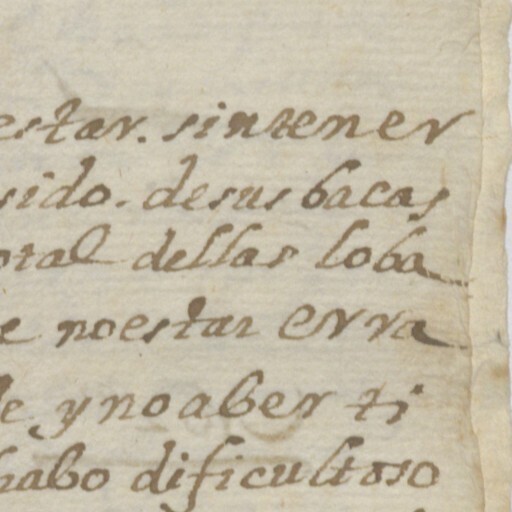 estar. sin tener
sido. de sus bacas
otal dellas loba
e no estar erra
le y no aber ti
habo dificultoso